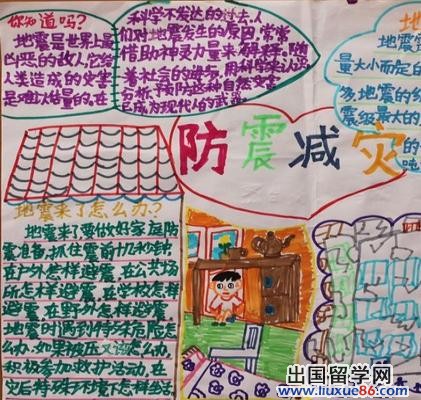 你知道吗?
地震是世界上最
凶恶的敌人,它给
人类造成的灾害
是难以估量的。在
科学不发达的过去,人
们对地震发生的原因,常常
借助神灵力量来解释。随
着社会的进步,用科学来认识
分析、预防这种自然灾害
已成为现代人的武器
地
地震震
量大小而定的
多,地震的级
震级最大的
的
吨
防震减灾
地震来了怎么办?
地震来了,要做好家庭防
震准备,抓住震前几秒钟
在户外怎样避震、在公共场
所怎样避震、在学校怎样
避震、在野外怎样避震
地震时遇到特殊危险怎
么办、如果被压又该怎么办、
积极参加救护活动、在
灾后特殊环境下怎样生活
出国留学网
www.liuxue86.com